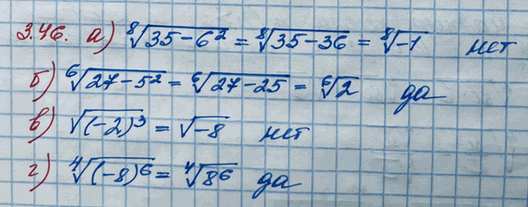 3.46. а) ⁸√(35-6²) = ⁸√(35-36) = ⁸√(-1) нет
б) ⁶√(27-5²) = ⁶√(27-25) = ⁶√2 да
в) √(-2)³ = √-8 нет
г) ⁴√(-8)⁶ = ⁴√8⁶ да